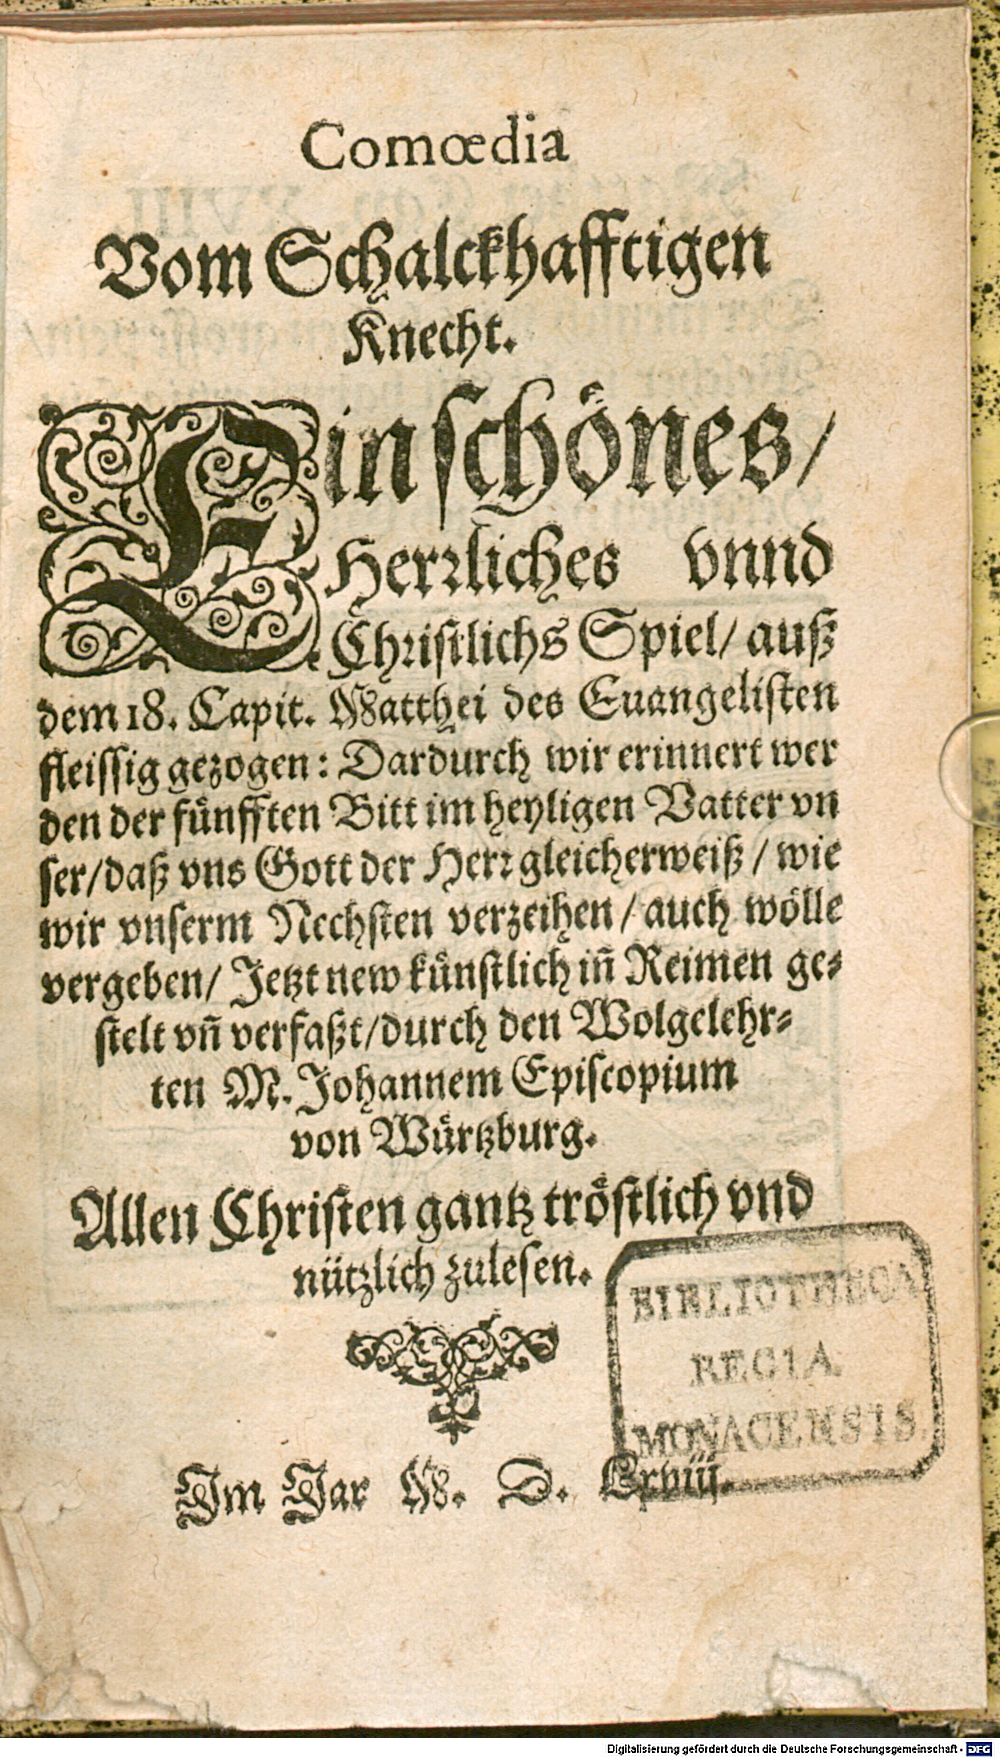 Comœdia
Vom Schalckhafftigen
Knecht.
Ein schönes/
Herꝛliches vnnd
Chꝛistlichs Spiel/ auß
dem 18. Capit. Matthei des Euangelisten
fleissig gezogen: Dardurch wir erinnert wer
den der fünfften Bitt im heyligen Vatter vn
ser/daß vns Gott der Herꝛ gleicherweiß/ wie
wir vnserm Nechsten verzeihen/ auch wölle
vergeben/ Jetzt new künstlich iñ Reimen ge⸗
stelt vñ verfaßt/durch den Wolgelehr⸗
ten M. Johannem Episcopium
von Würtzburg.
Allen Christen gantz tröstlich vnd
nützlich zulesen.
BIBLIOTHECA
REGIA
MONACENSIS.
Im Jar M. D. Lxviij.
Digitalisierung gefördert durch die Deutsche Forschungsgemeinschaft - DFG